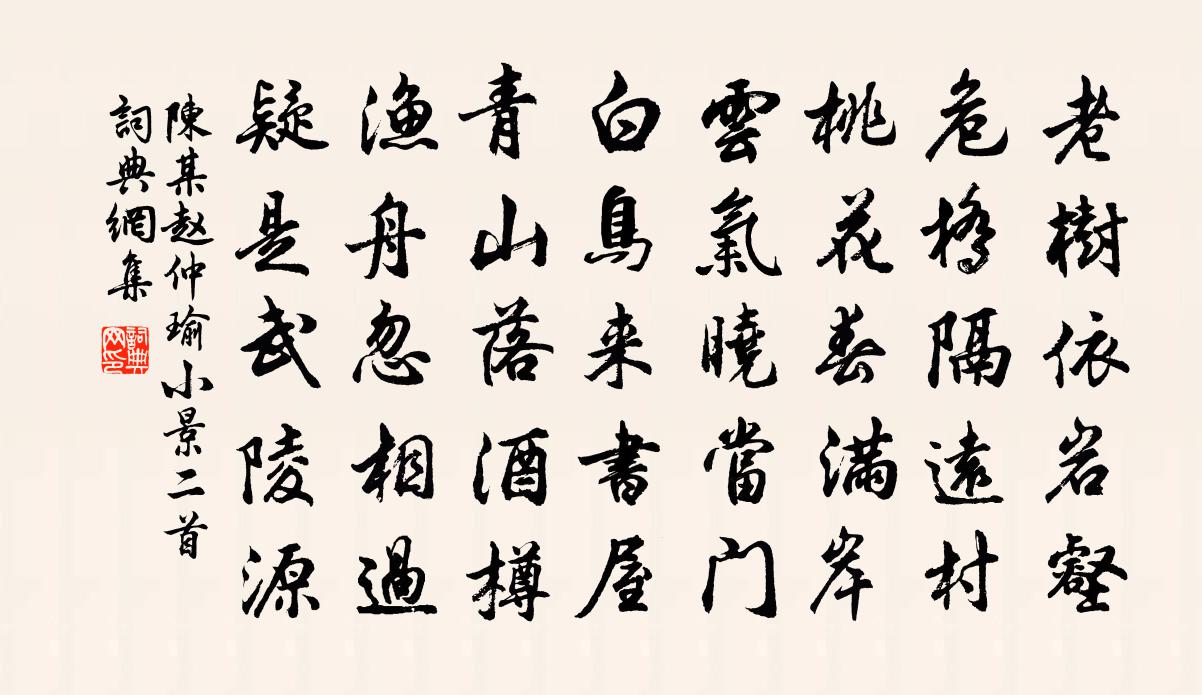 老樹依岩壑
危橋隔遠村
桃花春滿岸
雲氣曉當门
白鳥来書屋
青山落酒樽
漁舟忽相過
疑是武陵源
陳某赵仲瑜小景二首
詞典網集
詞典网印